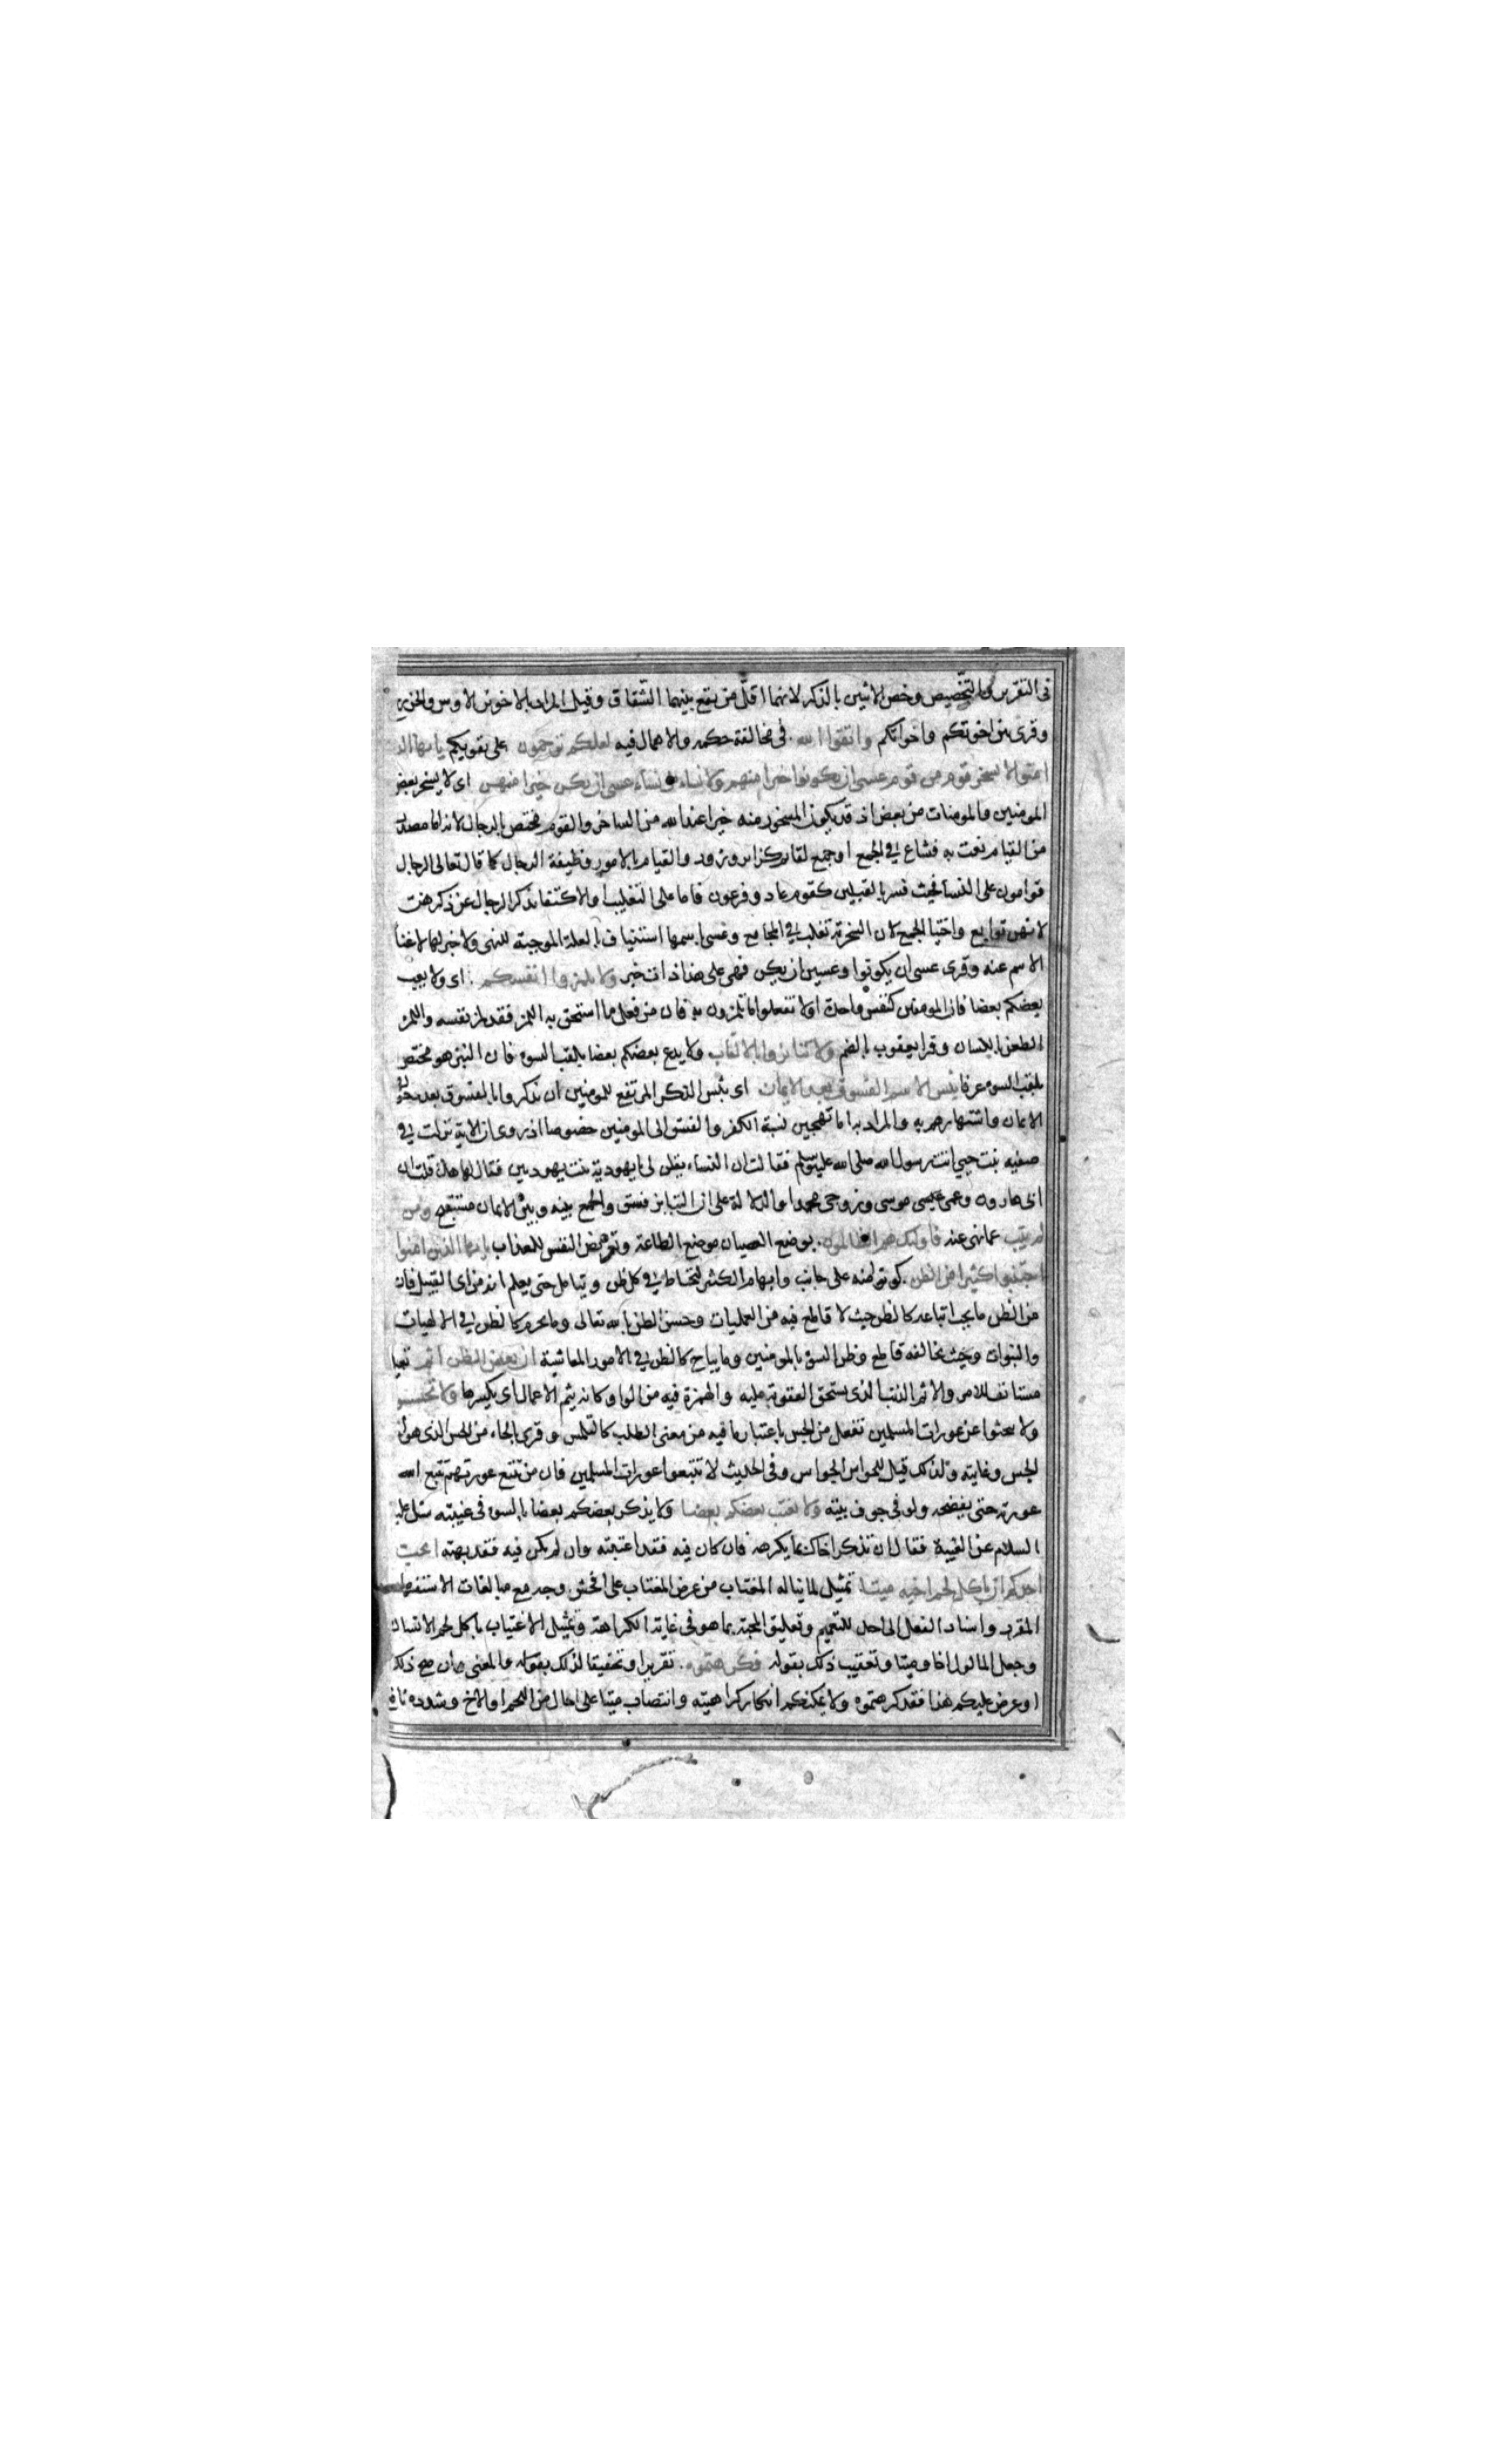 فى التقرير والتخصيص وخص الاثنين بالذكر لانهما اقل من يقع بينهما الشقاق وقيل المراد بالاخوين الاوس والخزرج
وقرى بين اخوتكم واخوانكم واتقوا الله فى مخالفة حكمه والاهمال فيه لعلكم ترحمون على تقويكم يا ايها الذ
امنوا لا يسخر قوم من قوم عسى ان يكونوا خيرا منهم ولا نساء من نساء عسى ان يكن خيرا منهن اى لا يسخر بعض
المومنين والمومنات من بعض اذ قد يكون المسخور منه خيرا عند الله من الساخر والقوم مختص بالرجال لانه اما مصدر
من القيام نعت به فشاع فى الجمع او جمع لقايم كزاير وزور والقيام بالامور وظيفة الرجال كما قال تعالى الرجال
قوامون على النسا فحيث فسر بالقبيلين كقوم عاد وفرعون فاما على التغليب او الاكتفا بذكر الرجال عن ذكرهن
لانهن توابع واختيا الجمع لان السخرية تغلب فى المجامع وعسى باسمها استيناف بالعلة الموجبة للنهى ولا خبر لها لاغنا
الاسم عنه وقرى عسوا ان يكونوا وعسين ان يكن فهى على هذا ذات خبر ولا تلمزوا انفسكم اى ولا يعب
بعضكم بعضا فان المومنين كنفس واحدة او لا تفعلوا ما تلمزون به فان من فعل ما استحق به اللمز فقد لمز نفسه واللمز
الطعن باللسان وقرا يعقوب بالضم ولا تنابزوا بالالقاب ولا يدع بعضكم بعضا بلقب السوء فان النبز هو مختص
بلقب السوء عرفا بئس الاسم الفسوق بعد الايمان اى بئس الذكر المرتفع للمومنين ان يذكروا بالفسوق بعد دخولهم
الايمان واشتهارهم به والمراد به اما تهجين نسبة الكفر والفسق الى المومنين خصوصا اذ روى ان الاية نزلت فى
صفيه بنت حيي اتت رسول الله صلى الله عليه وسلم فقالت ان النساء يقلن لى يا يهودية بنت يهوديين فقال لها هلا قلت ان
ابى هارون وعمى موسى وزوجى محمد او الدلالة على ان التنابز فسق والجمع بينه وبين الايمان مستقبح ومن
لم يتب عما نهى عنه فاولئك هم الظالمون بوضع العصيان موضع الطاعة وتعريض النفس للعذاب يا ايها الذين امنوا
اجتنبوا كثيرا من الظن كونوا منه على جانب وابهام الكثير ليحتاط فى كل ظن ويتامل حتى يعلم انه من اى القبيل فان
من الظن ما يجب اتباعه كالظن حيث لا قاطع فيه من العمليات وحسن الظن بالله تعالى وما يحرم كالظن فى الالهيات
والنبوات وحيث يخالفه قاطع وظن السوء بالمومنين وما يباح كالظن فى الامور المعاشية ان بعض الظن اثم تعليل
مستانف للامر والاثم الذنب الذى يستحق العقوبة عليه والهمزة فيه من الواو وكانه يثم الاعمال اى يكسرها ولا تجسسوا
ولا تبحثوا عن عورات المسلمين تفعل من الجس باعتبار ما فيه من معنى الطلب كالتلمس وقرى بالحاء من الحس الذى هو اثر
الجس وغايته ولذلك قيل للحواس الجواس وفى الحديث لا تتبعوا عورات المسلمين فان من تتبع عورتهم تتبع الله
عورته حتى يفضحه ولو فى جوف بيته ولا يغتب بعضكم بعضا ولا يذكر بعضكم بعضا بالسوء فى غيبته سئل عليه
السلام عن الغيبة فقال ان تذكر اخاك بما يكرهه فان كان فيه فقد اغتبته وان لم يكن فيه فقد بهته ايحب
احدكم ان ياكل لحم اخيه ميتا تمثيل لما يناله المغتاب من عرض المغتاب على افحش وجه مع مبالغات الاستفهام
المقرر واسناد الفعل الى احد للتعميم وتعليق المحبة بما هو فى غاية الكراهة وتمثيل الاغتياب باكل لحم الانسان
وجعل الماكول اخا وميتا وتعقيب ذلك بقوله فكرهتموه تقريرا وتحقيقا لذلك بقوله والمعنى ان صح ذلك
او عرض عليكم هذا فقد كرهتموه ولا يمكنكم انكار كراهيته وانتصاب ميتا على الحال من اللحم او الاخ وشدده نافع